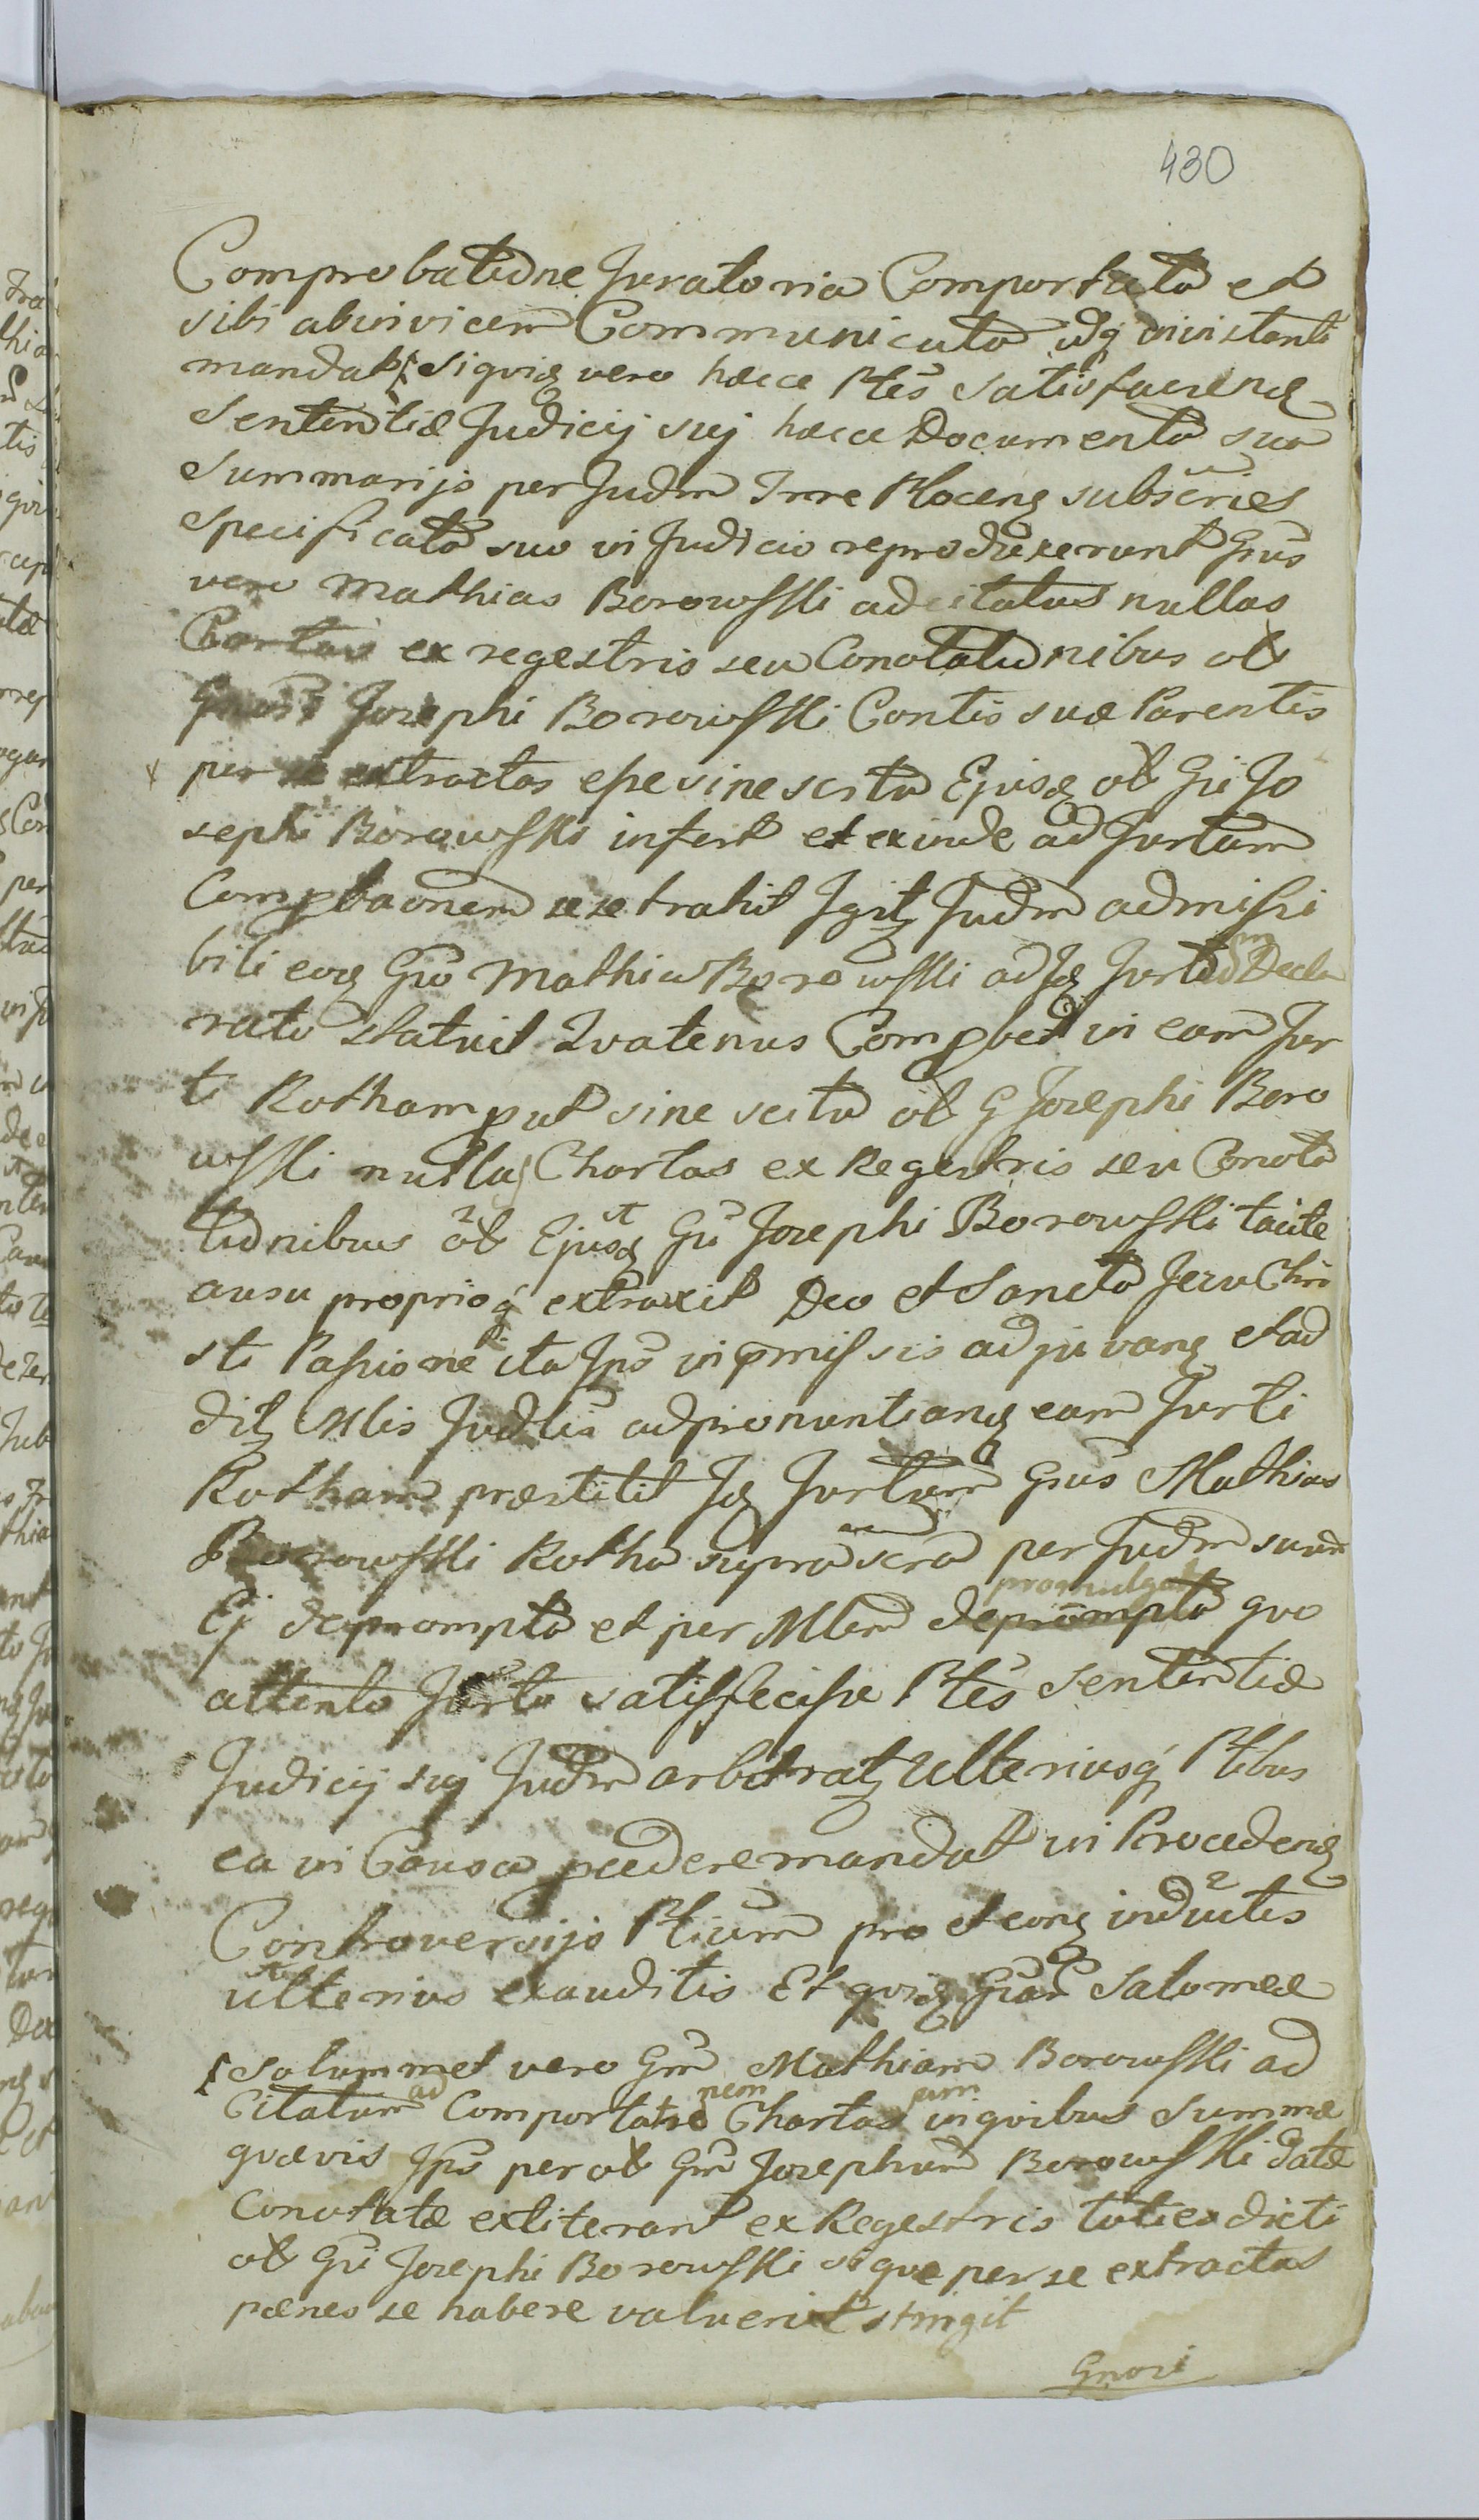 430
Comprobatione Juratoria Comportata et
sibi abinvicem Communicata idq in instanti
mandat Siquid vero hæcce Ptes Satisfaciend
Sententiæ Judicij suj hæcce Documenta sua
Summarijs per Judm Trre Plocens subscries
specificata suo in Judicio reproduxerunt Gnus
vero Mathias Borowsski adcitatus nullas
Chartas ex regestris seu Conotationibus olt
Josephi Borowsski Contis suæ Parentis
per se extractas esse sine scitu Ejusd olt Gni Jo
sephi Borowsski infert et exinde ad Jurtum
Compbaonem sese trahit Igitz Judm admissi
bili eog Gno Mathia Borowsski ad Id Jurtum Decla
rato statuit Quatenus Compbet in eam Jur
ti Rotham put sine scitu olt G Josephi Boro
wsski nullas Chartas ex Regestris seu Conota
tionibus olt Ejusd Gni Josephi Borowsski tacite
ausu proprioq extraxit Deo et Sancta Jesu Chri
sti Passione ita Ips in pmissis adjuvang et ad
ditz Mlis Judlis ad pronuntiand eam Jurti
Rotham præstitit Id Jurtum Gnus Mathias
Borowsski Rotha supra scra per Judm suum
promulgata
Ej deprompta et per Mlem deprompta quo
attento Jurto satisfecisse Ptes Sententiæ
Judicij suj Judm arbitratz Ulteriusq Ptibus
ea in Causa pcedere mandat in Procedend
Controversijs Ptium pro et cong inductis
ulterius exauditis Et quid Gnam Salomeæ
Solummet vero Gnm Mathiam Borowsski ad
ad nem um
Citatum Comportatio Chartas in quibus Summæ
quævis Ips per olt Gnm Josephum Borowsski datæ
Conotatæ extiterant ex Regestris toties dicti
olt Gni Josephi Borowsski si quæ per se extractas
pænes se habere valuerit stringit
Gnosi